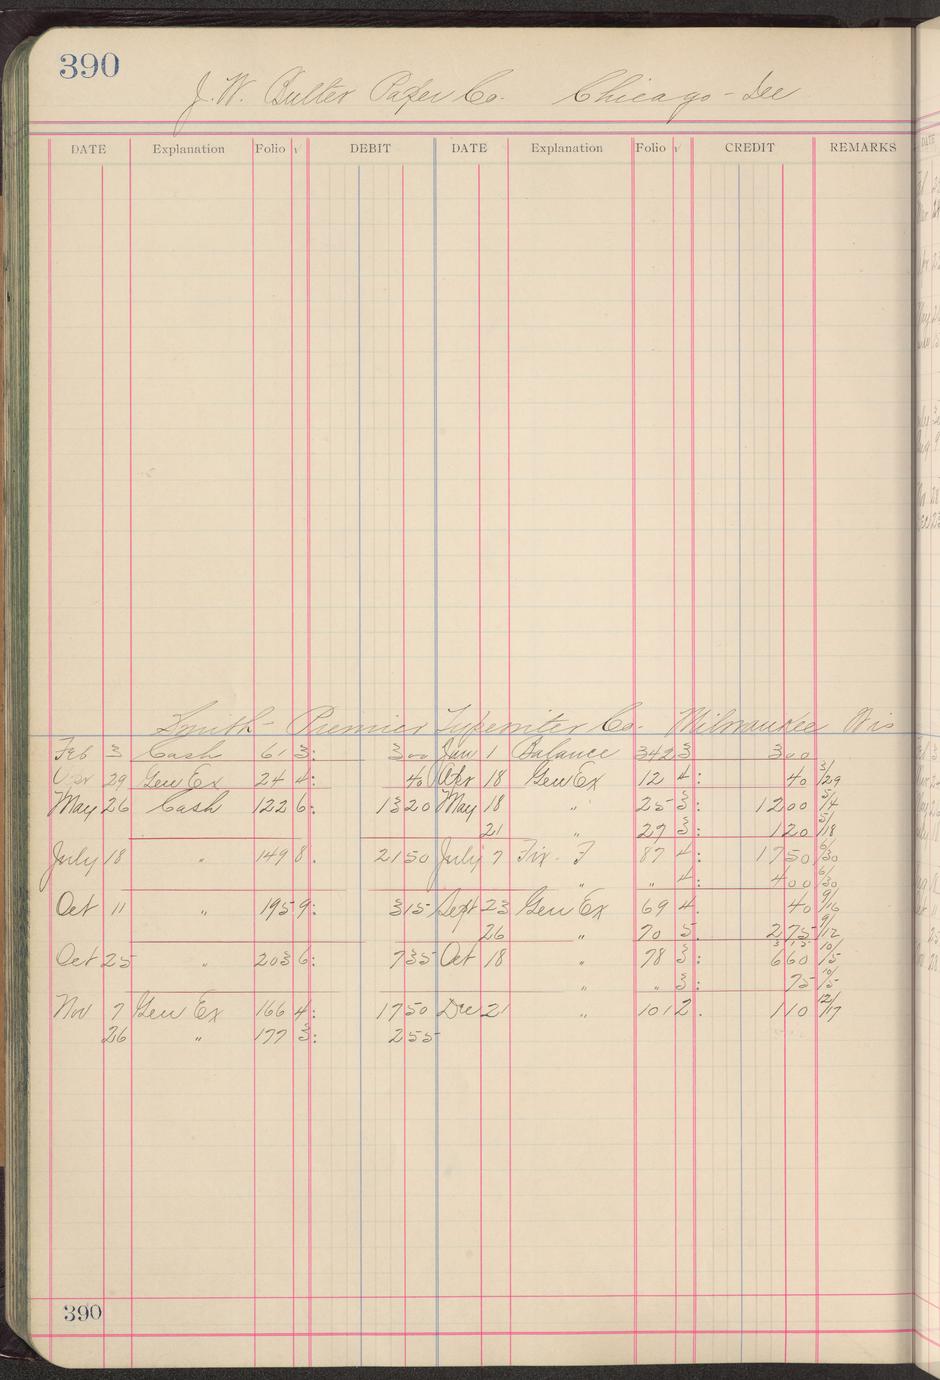 390
J. W. Butler Paper Co. Chicago - Ill
DATE Explanation Folio √ DEBIT DATE Explanation Folio √ CREDIT REMARKS
Smith-Premier Typewriter Co. Milwaukee Wis
Feb 3 Cash 61 3: 3 00 Jan 1 Balance 342 3 3 00
Apr 29 Gen Ex 24 4: 40 Apr 18 Gen Ex 12 4: 40 3/29
May 26 Cash 122 6: 13 20 May 18 " 25 3: 12 00 5/4
21 " 27 3: 1 20 5/18
July 18 " 149 8. 21 50 July 7 Fix. F 87 4: 17 50 6/30
" " 4: 4 00 6/30
Oct 11 " 195 9: 3 15 Sept 23 Gen Ex 69 4. 40 9/16
26 " 70 5. 2 75 9/12
3 15
Oct 25 " 203 6: 7 35 Oct 18 " 78 3: 6 60 10/5
" " 3: 75 10/5
Nov 7 Gen Ex 166 4: 17 50 Dec 21 " 101 2. 1 10 12/17
26 " 177 3: 2 55
390